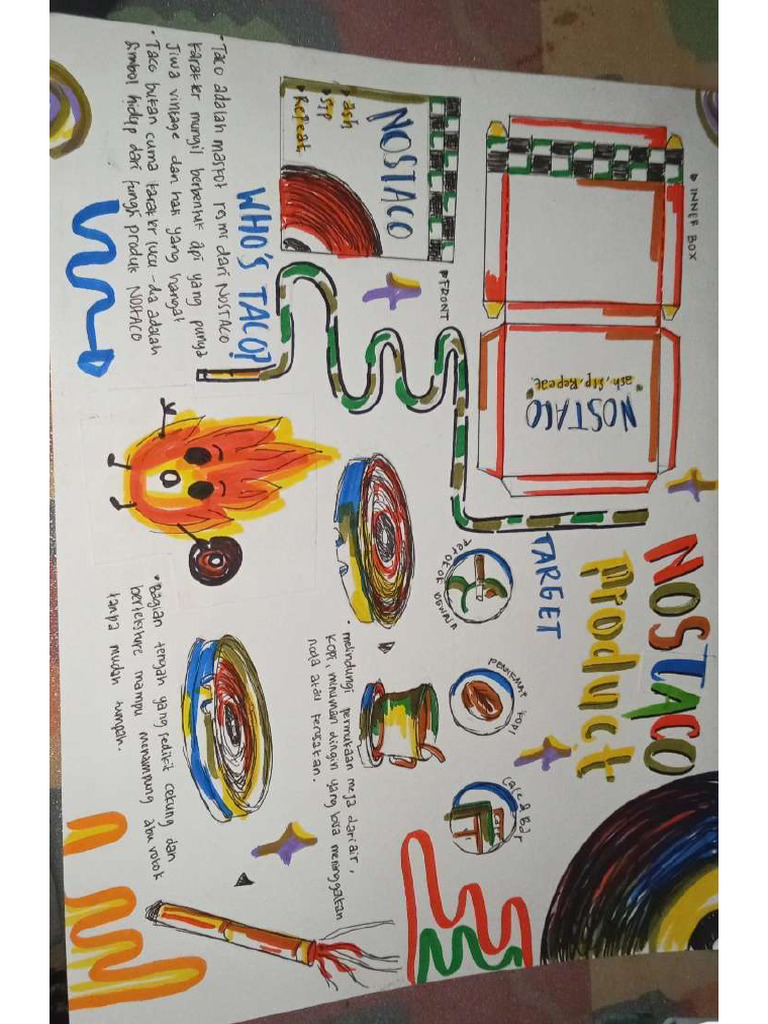 NOSTACO
product
TARGET
perokok dewasa
penikmat kopi
cafe & Bar
INNER BOX
NOSTACO
ash, sip, Repeat.
FRONT
NOSTACO
ash
sip
Repeat.
• melindungi permukaan meja dari air,
kopi, minuman dingin yang bisa meninggalkan
noda atau
WHO'S TACO?
• Taco adalah maskot resmi dari NOSTACO
karakter mungil berbentuk api yang punya
Jiwa vintage dan hati yang hangat
• Taco bukan cuma karakter lucu - dia adalah
Simbol hidup dari fungsi produk NOSTACO
• Bagian tengah yang sedikit cekung dan
berteksture mampu menampung abu rokok
tanpa mudah tumpah.